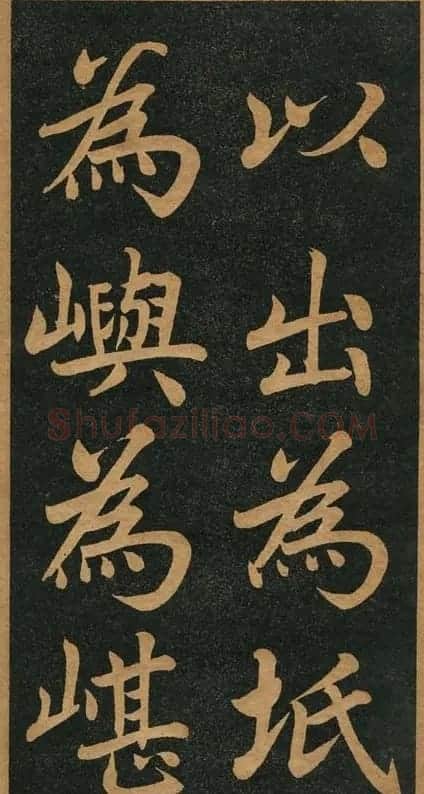 以出為坻
為嶼為嵁
Shufaziliao.COM